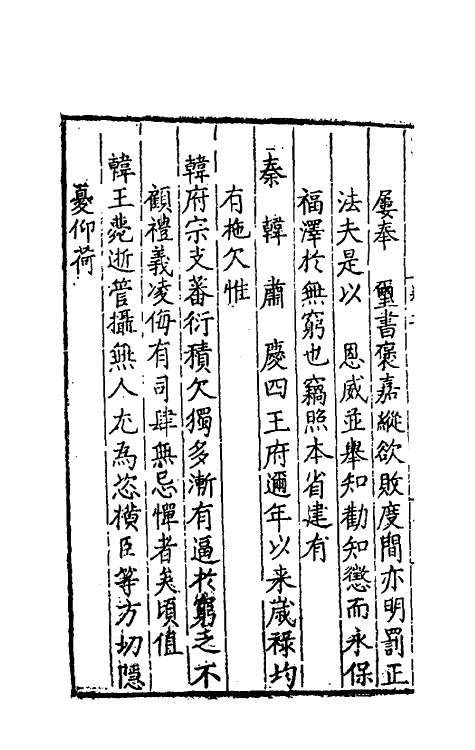 屢奉　璽書褒嘉縱欲敗度間亦明罰正
法夫是以　恩威並舉知勸知懲而永保
福澤於無窮也竊照本省建有
秦　韓　肅　慶四王府邇年以来歲祿均
有拖欠惟
韓府宗支蕃衍積欠獨多漸有逼於窮乏不
顧禮義凌侮有司肆無忌憚者矣頃值
韓王薨逝管攝無人尤為恣橫臣等方切隱
憂仰荷